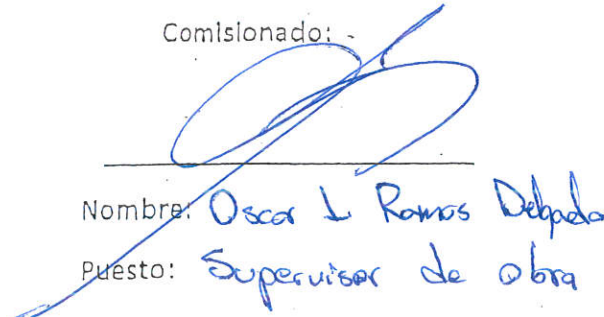 Comisionado:
Nombre: Oscar L Ramos Delgado
Puesto: Supervisor de obra